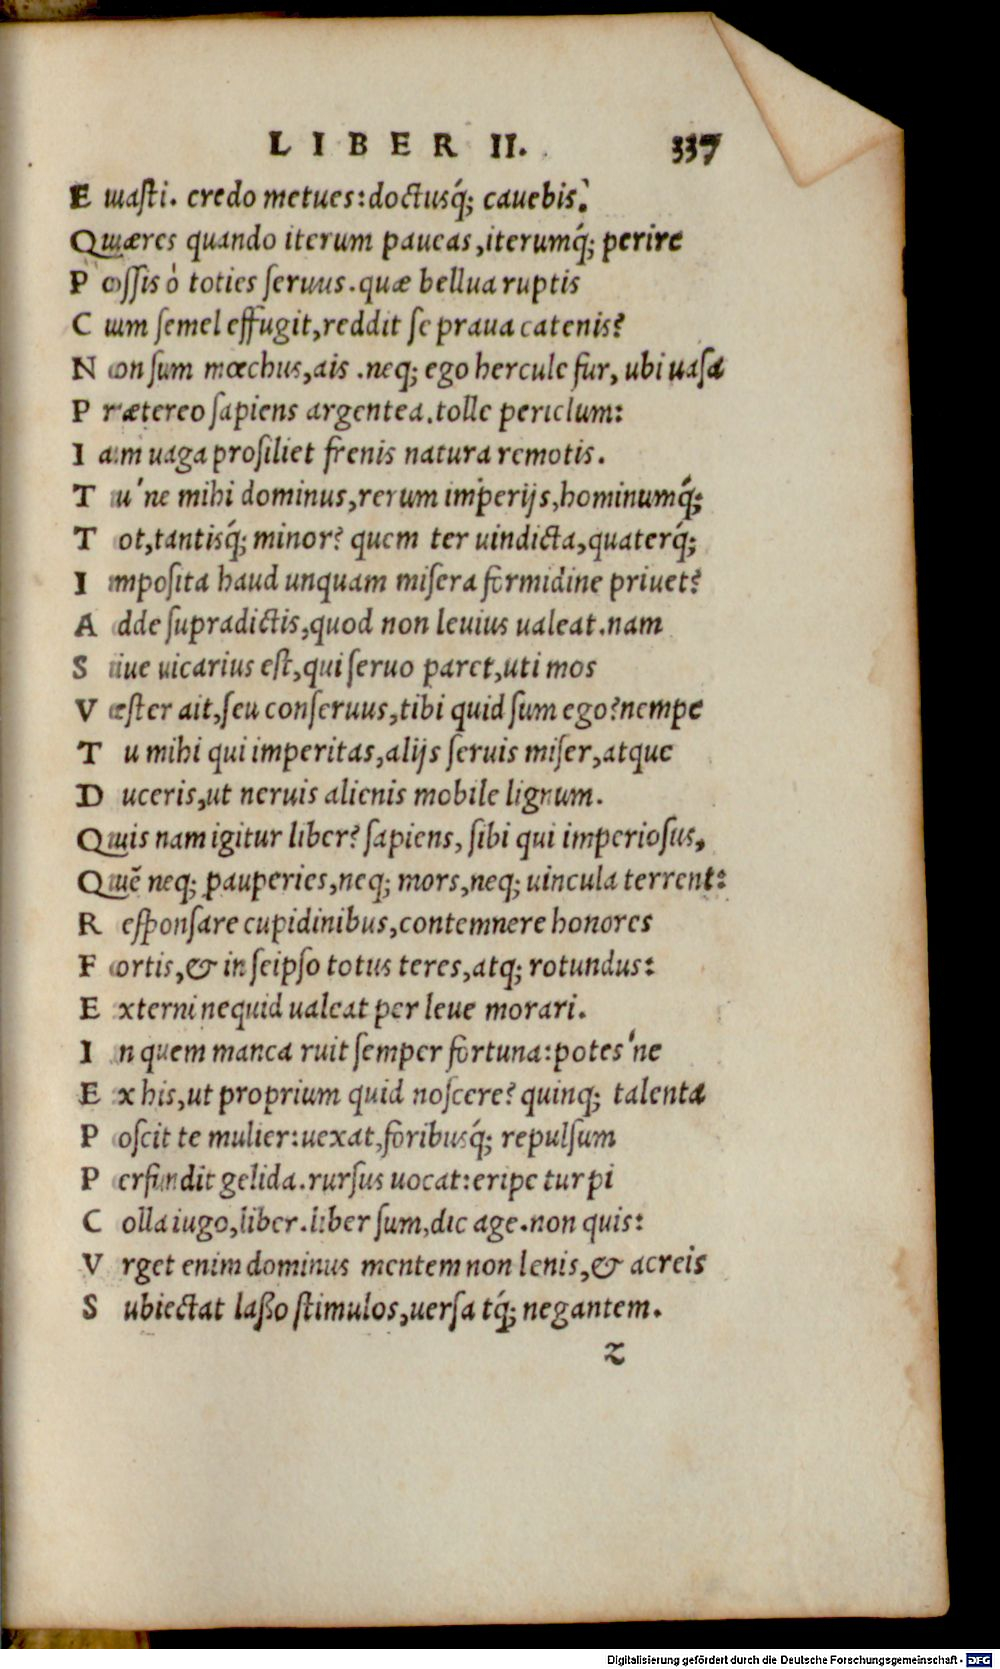 LIBER II. 337
Euasti. credo metues:doctusq́; cauebis.
Quæres quando iterum paueas,iterumq́; perire
Possis ò toties seruus.quæ bellua ruptis
Cum semel effugit,reddit se praua catenis?
Non sum mœchus,ais .neq; ego hercule fur, ubi uasa
Prætereo sapiens argentea.tolle periclum:
Iam uaga prosiliet frenis natura remotis.
Tu'ne mihi dominus,rerum imperijs,hominumq́;
Tot,tantisq́; minor? quem ter uindicta,quaterq́;
Imposita haud unquam misera formidine priuet?
Adde supradictis,quod non leuius ualeat.nam
Siue uicarius est,qui seruo paret,uti mos
Vester ait,seu conseruus,tibi quid sum ego?nempe
Tu mihi qui imperitas,alijs seruis miser,atque
Duceris,ut neruis alienis mobile lignum.
Quis nam igitur liber? sapiens, sibi qui imperiosus,
Quẽ neq; pauperies,neq; mors,neq; uincula terrent:
Responsare cupidinibus,contemnere honores
Fortis,& in seipso totus teres,atq; rotundus:
Externi nequid ualeat per leue morari.
In quem manca ruit semper fortuna:potes'ne
Ex his,ut proprium quid noscere? quinq; talenta
Poscit te mulier:uexat,foribusq́; repulsum
Perfundit gelida.rursus uocat:eripe turpi
Colla iugo,liber.liber sum,dic age.non quis:
Vrget enim dominus mentem non lenis,& acreis
Subiectat laßo stimulos,uersa tq́; negantem.
z
Digitalisierung gefördert durch die Deutsche Forschungsgemeinschaft - DFG